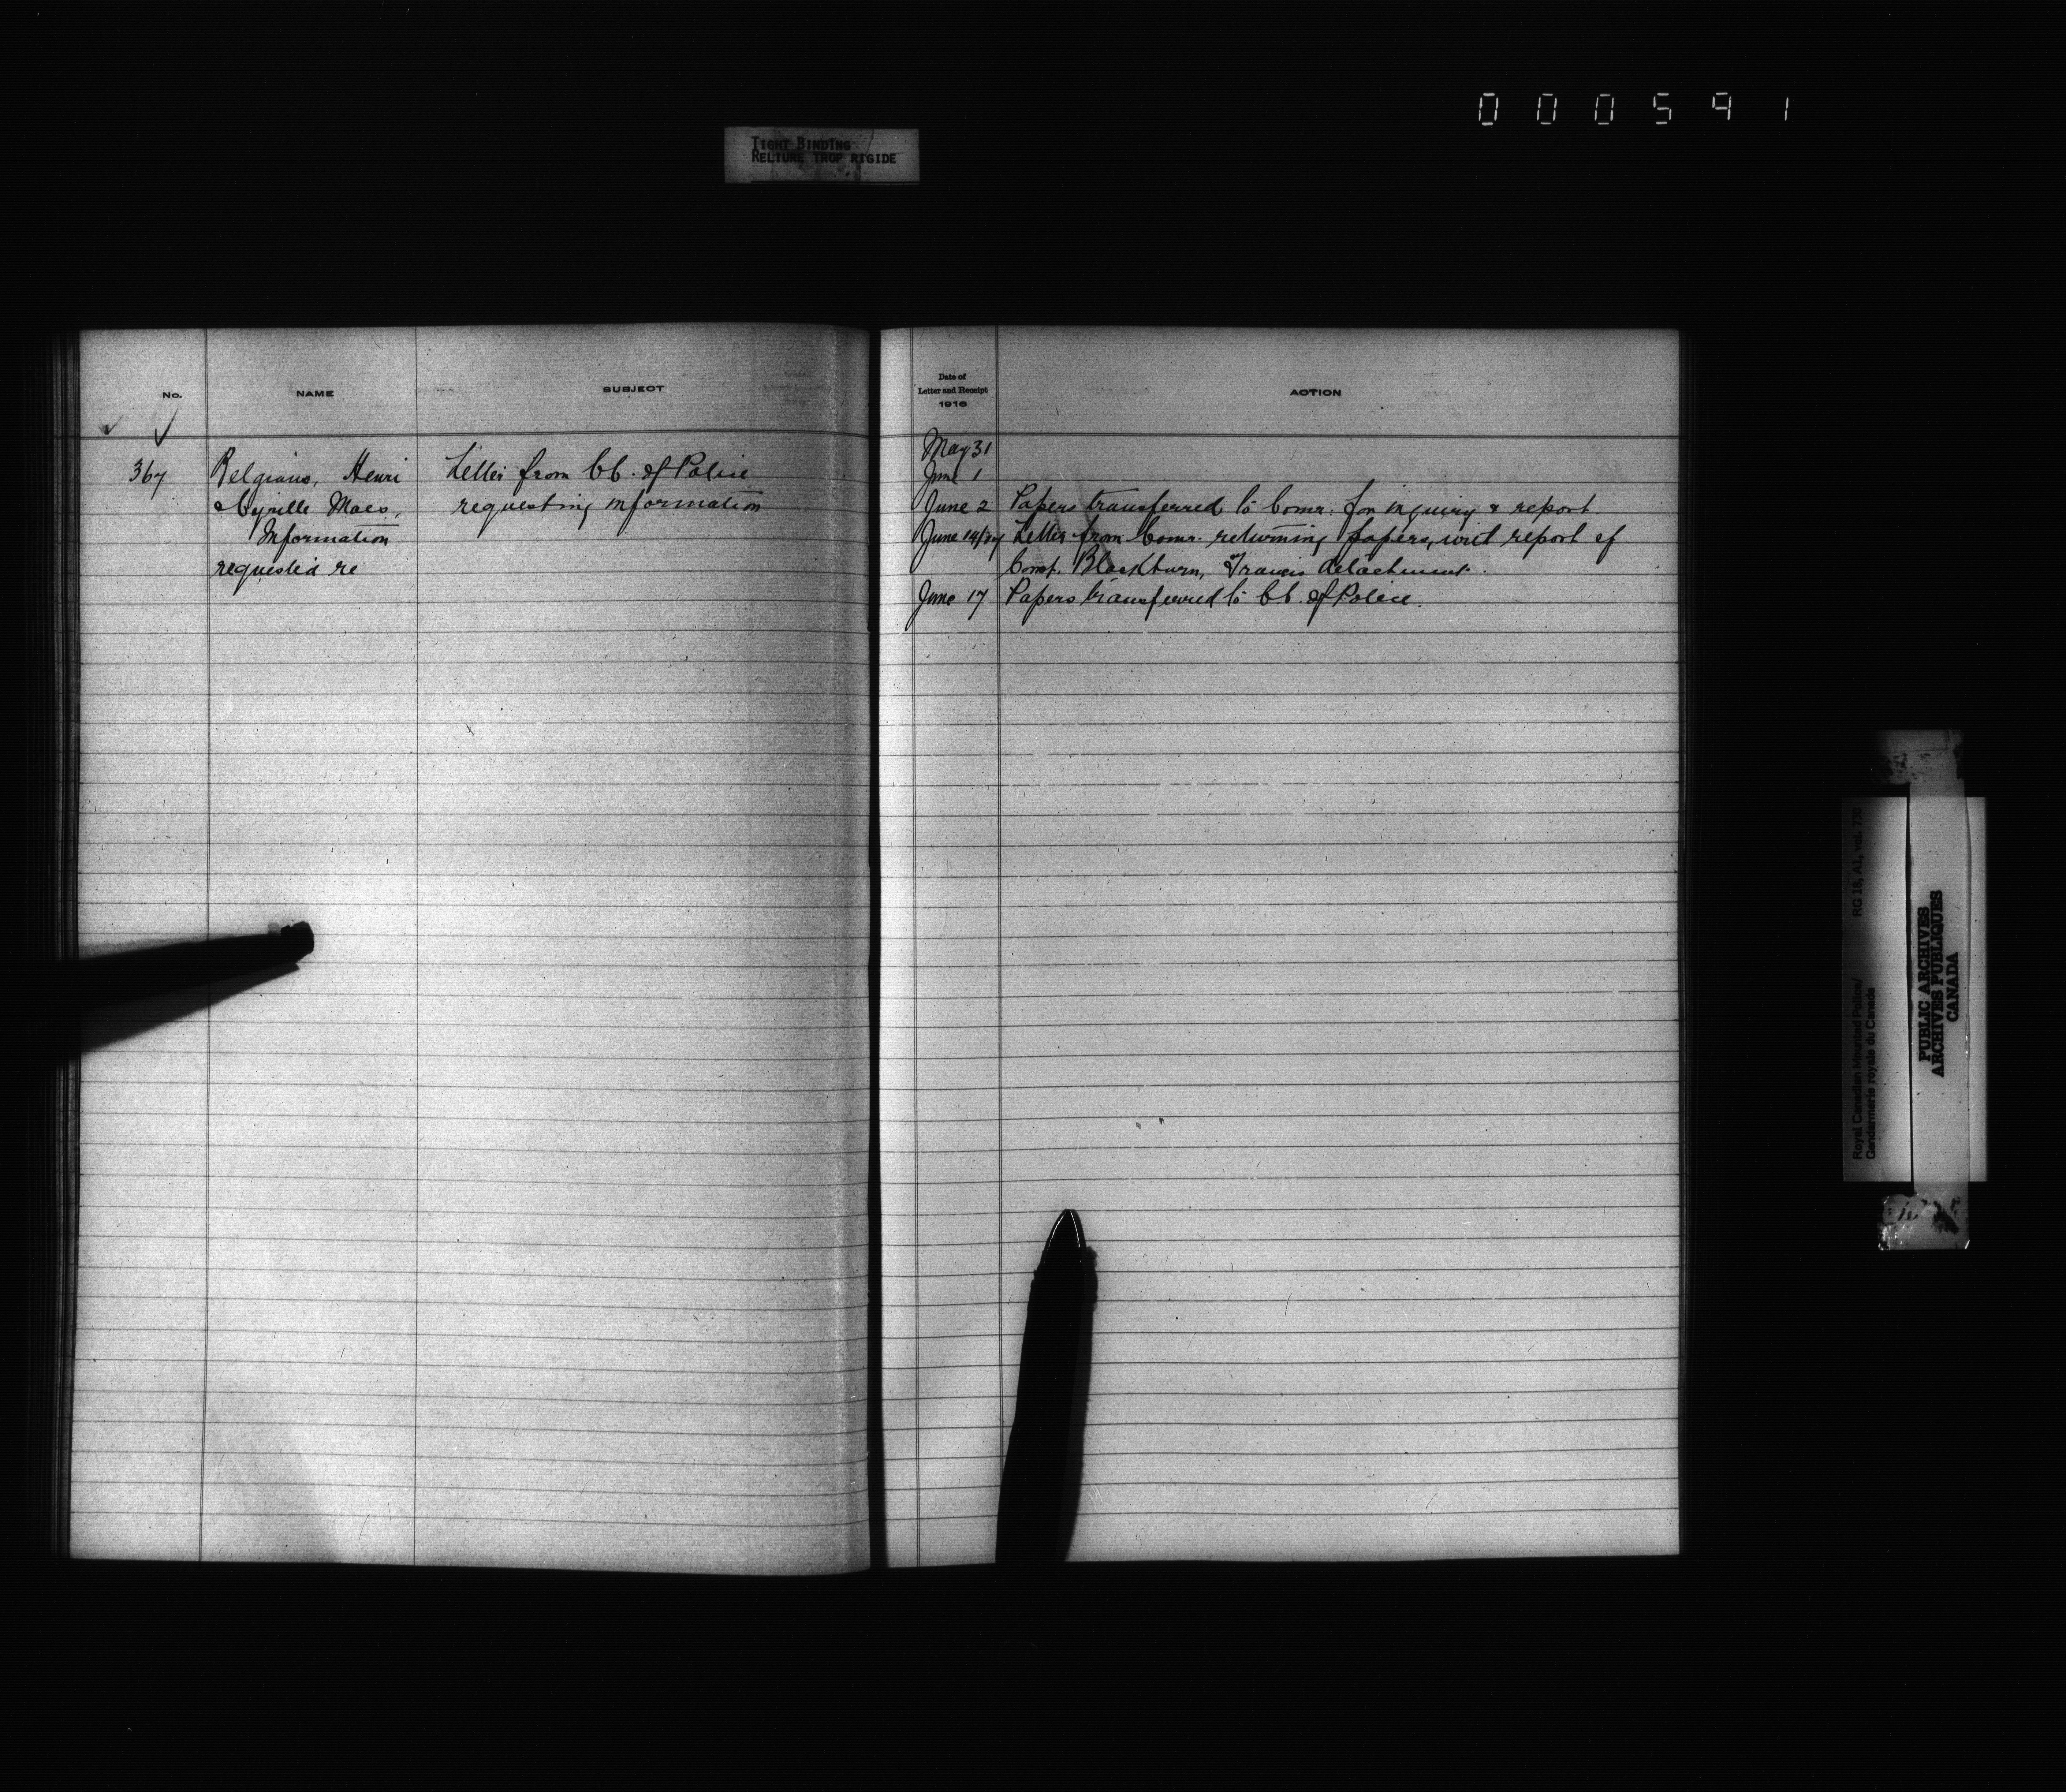 000591
TIGHT BINDING
RELIURE TROP RIGIDE
No.
NAME
SUBJECT
367
Belgians, Henri
& Cyrille Maes,
Information
requested re
Letter from CC. of Police
requesting information
Date of
Letter and Receipt
1916
ACTION
May 31
June 1
June 2 Papers transferred to Comr. for inquiry & report.
June 14/17 Letter from Comr. returning papers, with report of
Const. Blackburn, Francis detachment.
June 17 Papers transferred to CC. of Police.
Royal Canadian Mounted Police/
Gendarmerie royale du Canada
RG 18, A1, vol. 730
PUBLIC ARCHIVES
ARCHIVES PUBLIQUES
CANADA